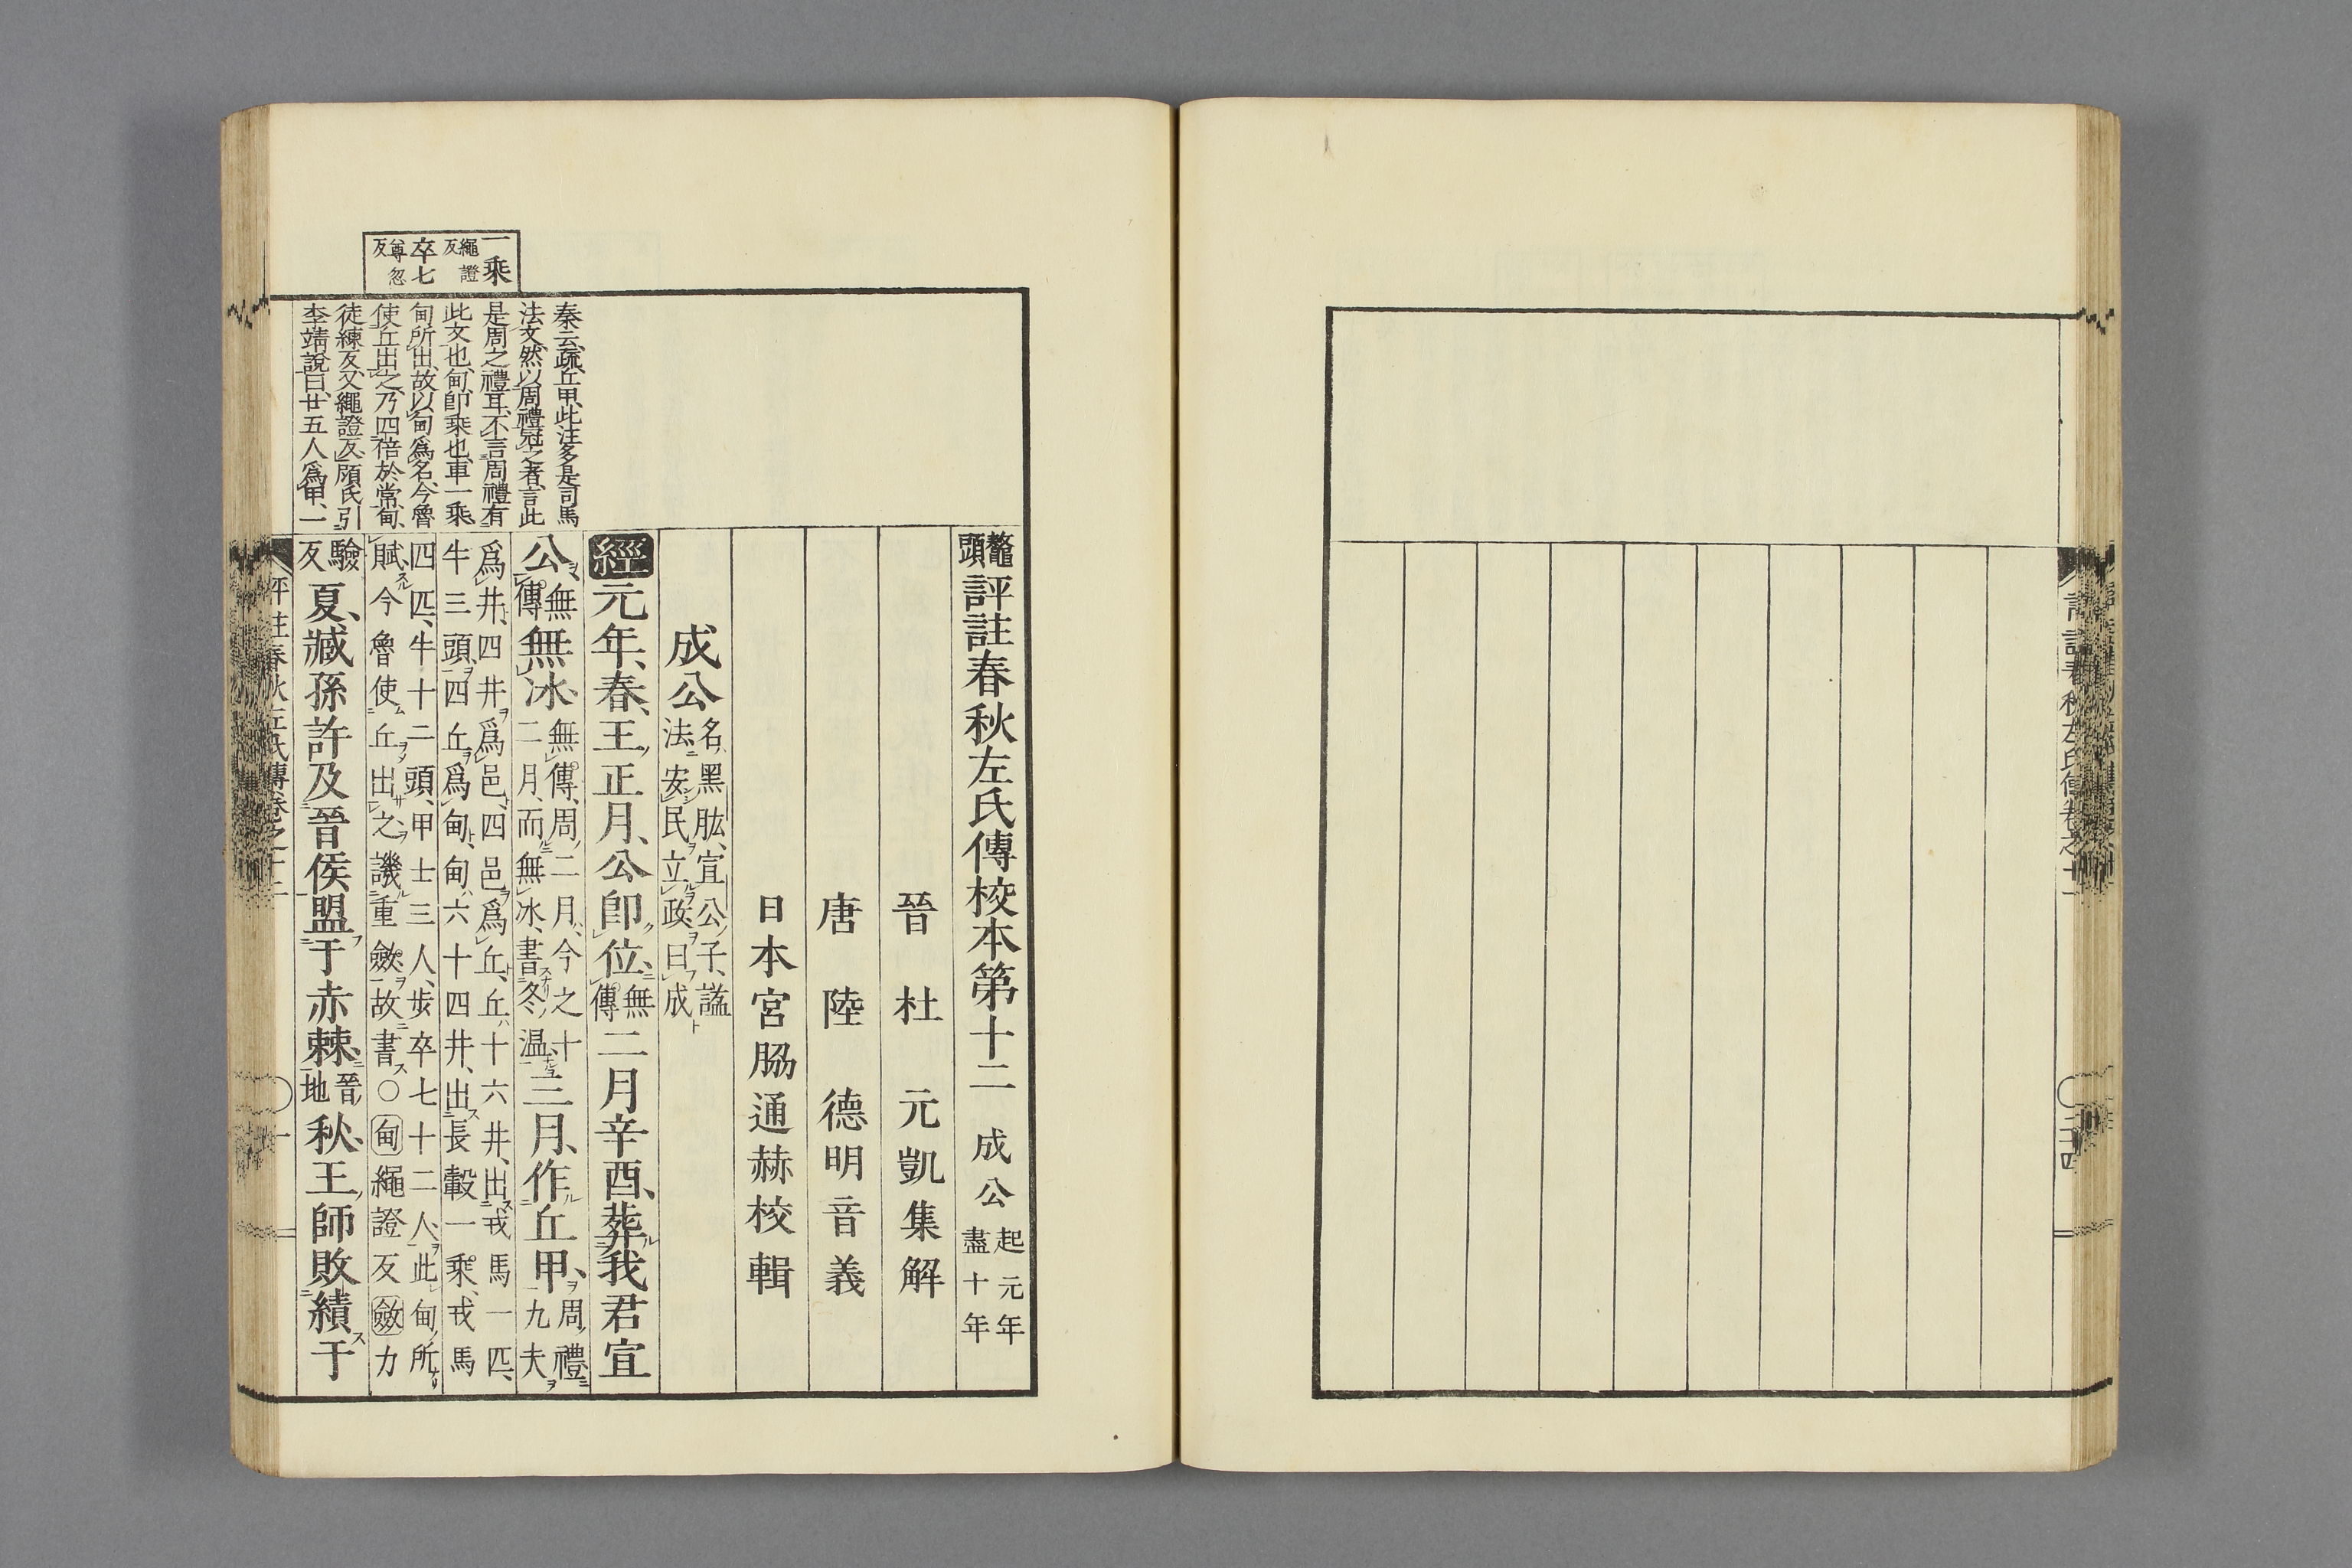 評註春秋左氏傳卷之十一
三十四
鼇頭評註春秋左氏傳校本第十二　成公起元年盡十年
晉　杜　元凱集解
唐　陸　德明音義
日本宮脇通赫校輯
成公名黑肱、宣公子、諡法安民立政曰成
經元年、春、王正月、公卽位、無傳二月辛酉、葬我君宣
公、無傳無冰、無傳、周二月、今之十二月、而無冰、書冬溫三月、作丘甲、周禮九夫
爲井、四井爲邑、四邑爲丘、丘十六井、出戎馬一匹、
牛三頭、四丘爲甸、甸六十四井、出長轂一乘、戎馬
四匹、牛十二頭、甲士三人、步卒七十二人、此甸所
賦、今魯使丘出之、譏重斂、故書〇甸繩證反斂力
驗反夏、臧孫許及晉侯盟于赤棘、晉地秋、王師敗績于
秦云、疏、丘甲、此注多是司馬
法文、然以周禮冠之者、言此
是周之禮耳、不言周禮有
此文也、甸卽乘也、車一乘、
甸所出、故以甸爲名、今魯
使丘出之、乃四倍於常甸、
徒練反、又繩證反、頋氏引
李靖說曰、廿五人爲甲、一
一乘繩證反
卒七尊忽反
評註春秋左氏傳卷之十二
一